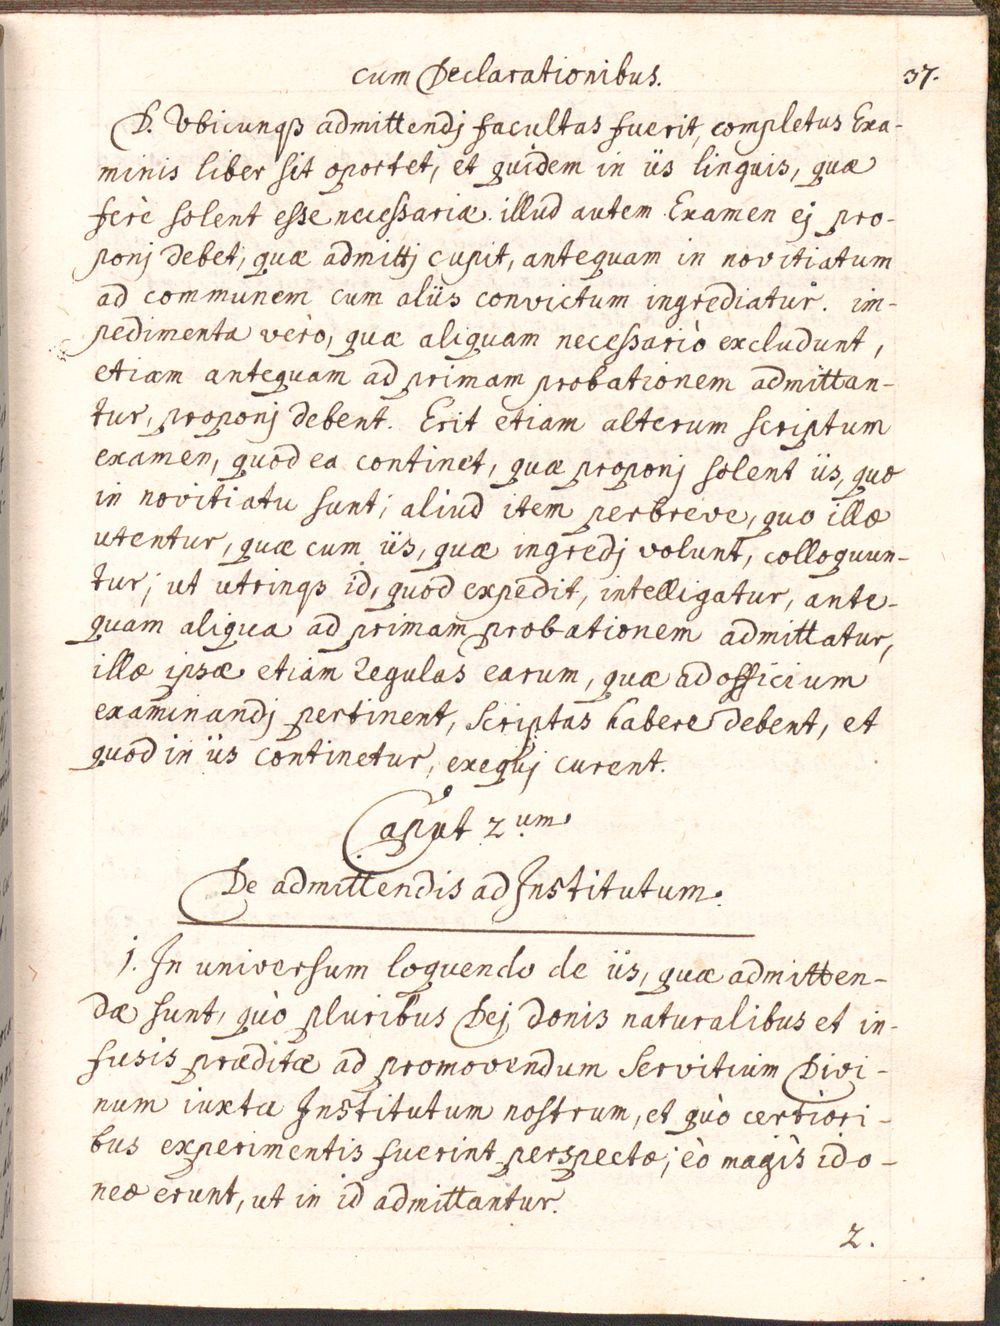 cum Declarationibus.
37.
D. Vbicunqß admittendj facultas fuerit, completus Exa-
minis liber sit oportet, et quidem in iis linguis, quæ
ferè solent esse necessariæ. illud autem Examen ej pro-
ponj debet, quæ admittj cupit, antequam in novitiatum
ad communem cum aliis convictum ingrediatur. im-
pedimenta vèro, quæ aliquam necessariò excludunt,
etiam antequam ad primam probationem admittan-
tur, proponj debent. Erit etiam alterum scriptum
examen, quod ea continet, quæ proponj solent iis, quæ
in novitiatu sunt; aliud item perbreve, quo illæ
utentur, quæ cum iis, quæ ingredj volunt, colloquun-
tur; ut utrinqß id, quod expedit, intelligatur, ante-
quam aliqua ad primam probationem admittatur,
illæ ipsæ etiam Regulas earum, quæ ad officium
examinandj pertinent, scriptas habere debent, et
quod in iis continetur, exequj curent.
Caput 2um.
De admittendis ad Institutum.
j. In universum loquendo de iis, quæ admitten-
dæ sunt, quò pluribus Dej donis naturalibus et in-
fusis præditæ ad promovendum Servitium Divi-
num iuxta Institutum nostrum, et quò certiori-
bus experimentis fuerint perspectæ; eò magìs ido-
neæ erunt, ut in id admittantur.
2.